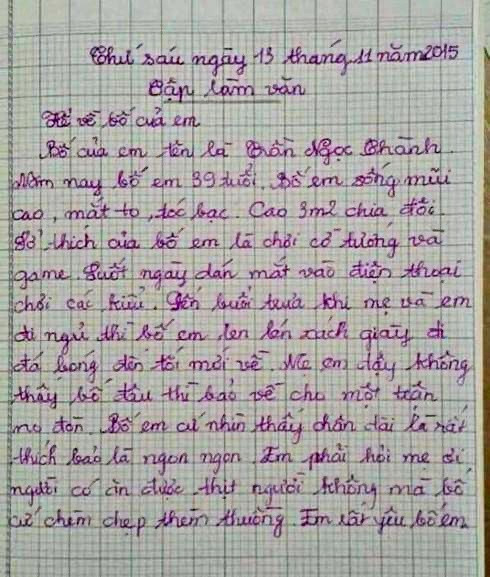 Thứ sáu ngày 13 tháng 11 năm 2015
Tập làm văn
Kể về bố của em
Bố của em tên là Trần Ngọc Thành.
Năm nay bố em 39 tuổi. Bố em sống mũi
cao, mắt to, tóc bạc. Cao 3m2 chia đôi.
Sở thích của bố em là chơi cờ tướng và
game. Suốt ngày dán mắt vào điện thoại
chơi các kiểu. Đến buổi trưa khi mẹ và em
đi ngủ thì bố em len lén xách giày đi
đá bóng đến tối mới về. Mẹ em dậy không
thấy bố đâu thì bảo về cho một trận
no đòn. Bố em cứ nhìn thấy chân dài là rất
thích bảo là ngon ngon. Em phải hỏi mẹ ơi
người có ăn được thịt người không mà bố
cứ chẹm chẹp thèm thuồng. Em rất yêu bố em.